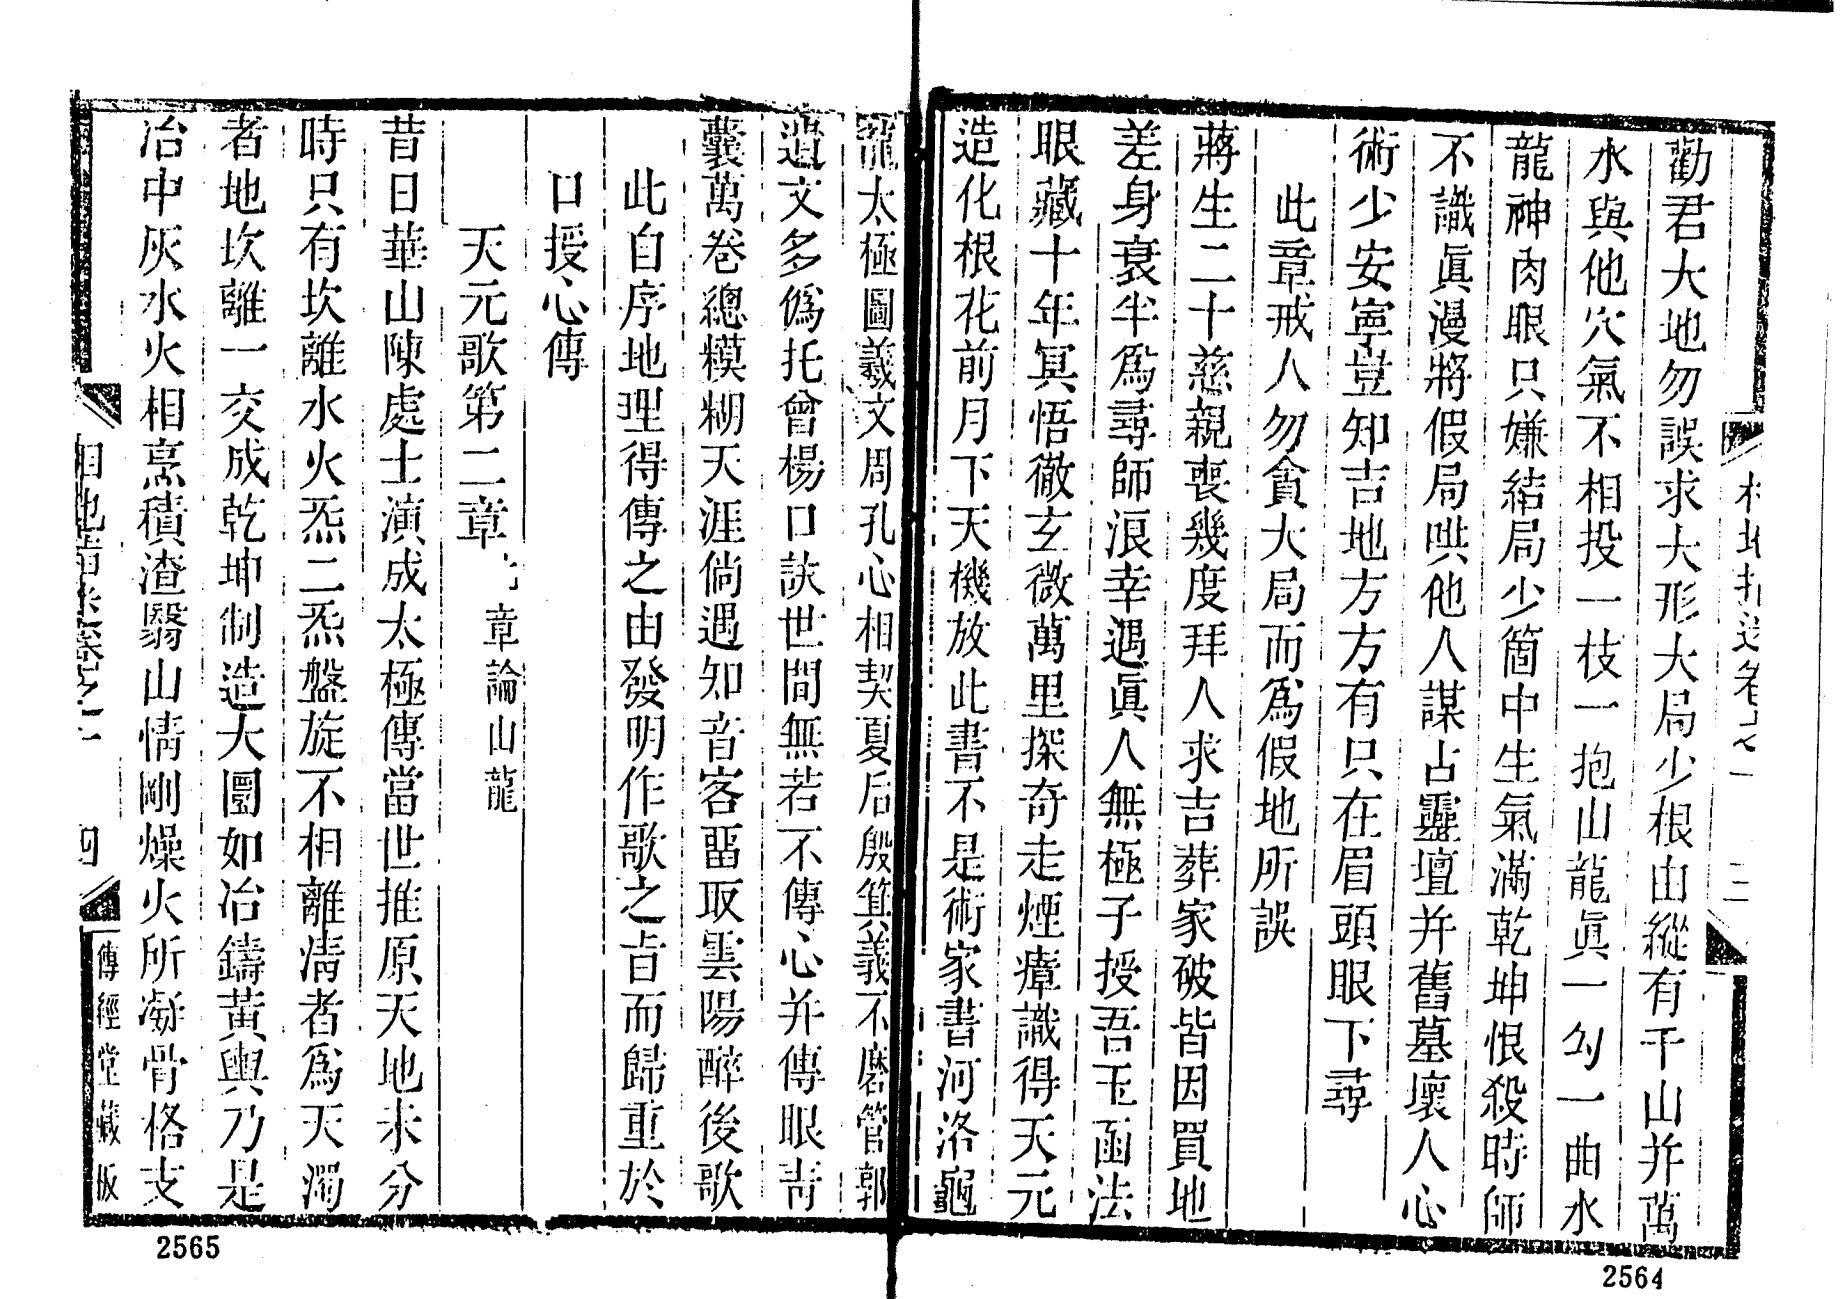 勸君大地勿誤求大形大局少根由縱有千山并萬
水與他穴氣不相投一枝一抱山龍眞一勾一曲水
龍神肉眼只嫌結局少箇中生氣滿乾坤恨殺時師
不識眞漫將假局哄他人謀占靈壇并舊墓壞人心
術少安寧豈知吉地方方有只在眉頭眼下尋
此章戒人勿貪大局而爲假地所誤
蔣生二十慈親喪幾度拜人求吉葬家破皆因買地
差身衰半爲尋師浪幸遇眞人無極子授吾玉函法
眼藏十年冥悟徹玄微萬里探奇走煙瘴識得天元
造化根花前月下天機放此書不是術家書河洛龜
龍太極圖義文周孔心相契夏后殷箕義不磨管郭
遺文多僞托曾楊口訣世間無若不傳心并傳眼靑
囊萬卷總糢糊天涯倘遇知音客畱取雲陽醉後歌
此自序地理得傳之由發明作歌之旨而歸重於
口授心傳
天元歌第二章 章論山龍
昔日華山陳處士演成太極傳當世推原天地未分
時只有坎離水火炁二炁盤旋不相離淸者爲天濁
者地坎離一交成乾坤制造大圜如冶鑄黃輿乃是
冶中灰水火相烹積渣翳山情剛燥火所凝骨格支
四
傳經堂藏板
2565
2564